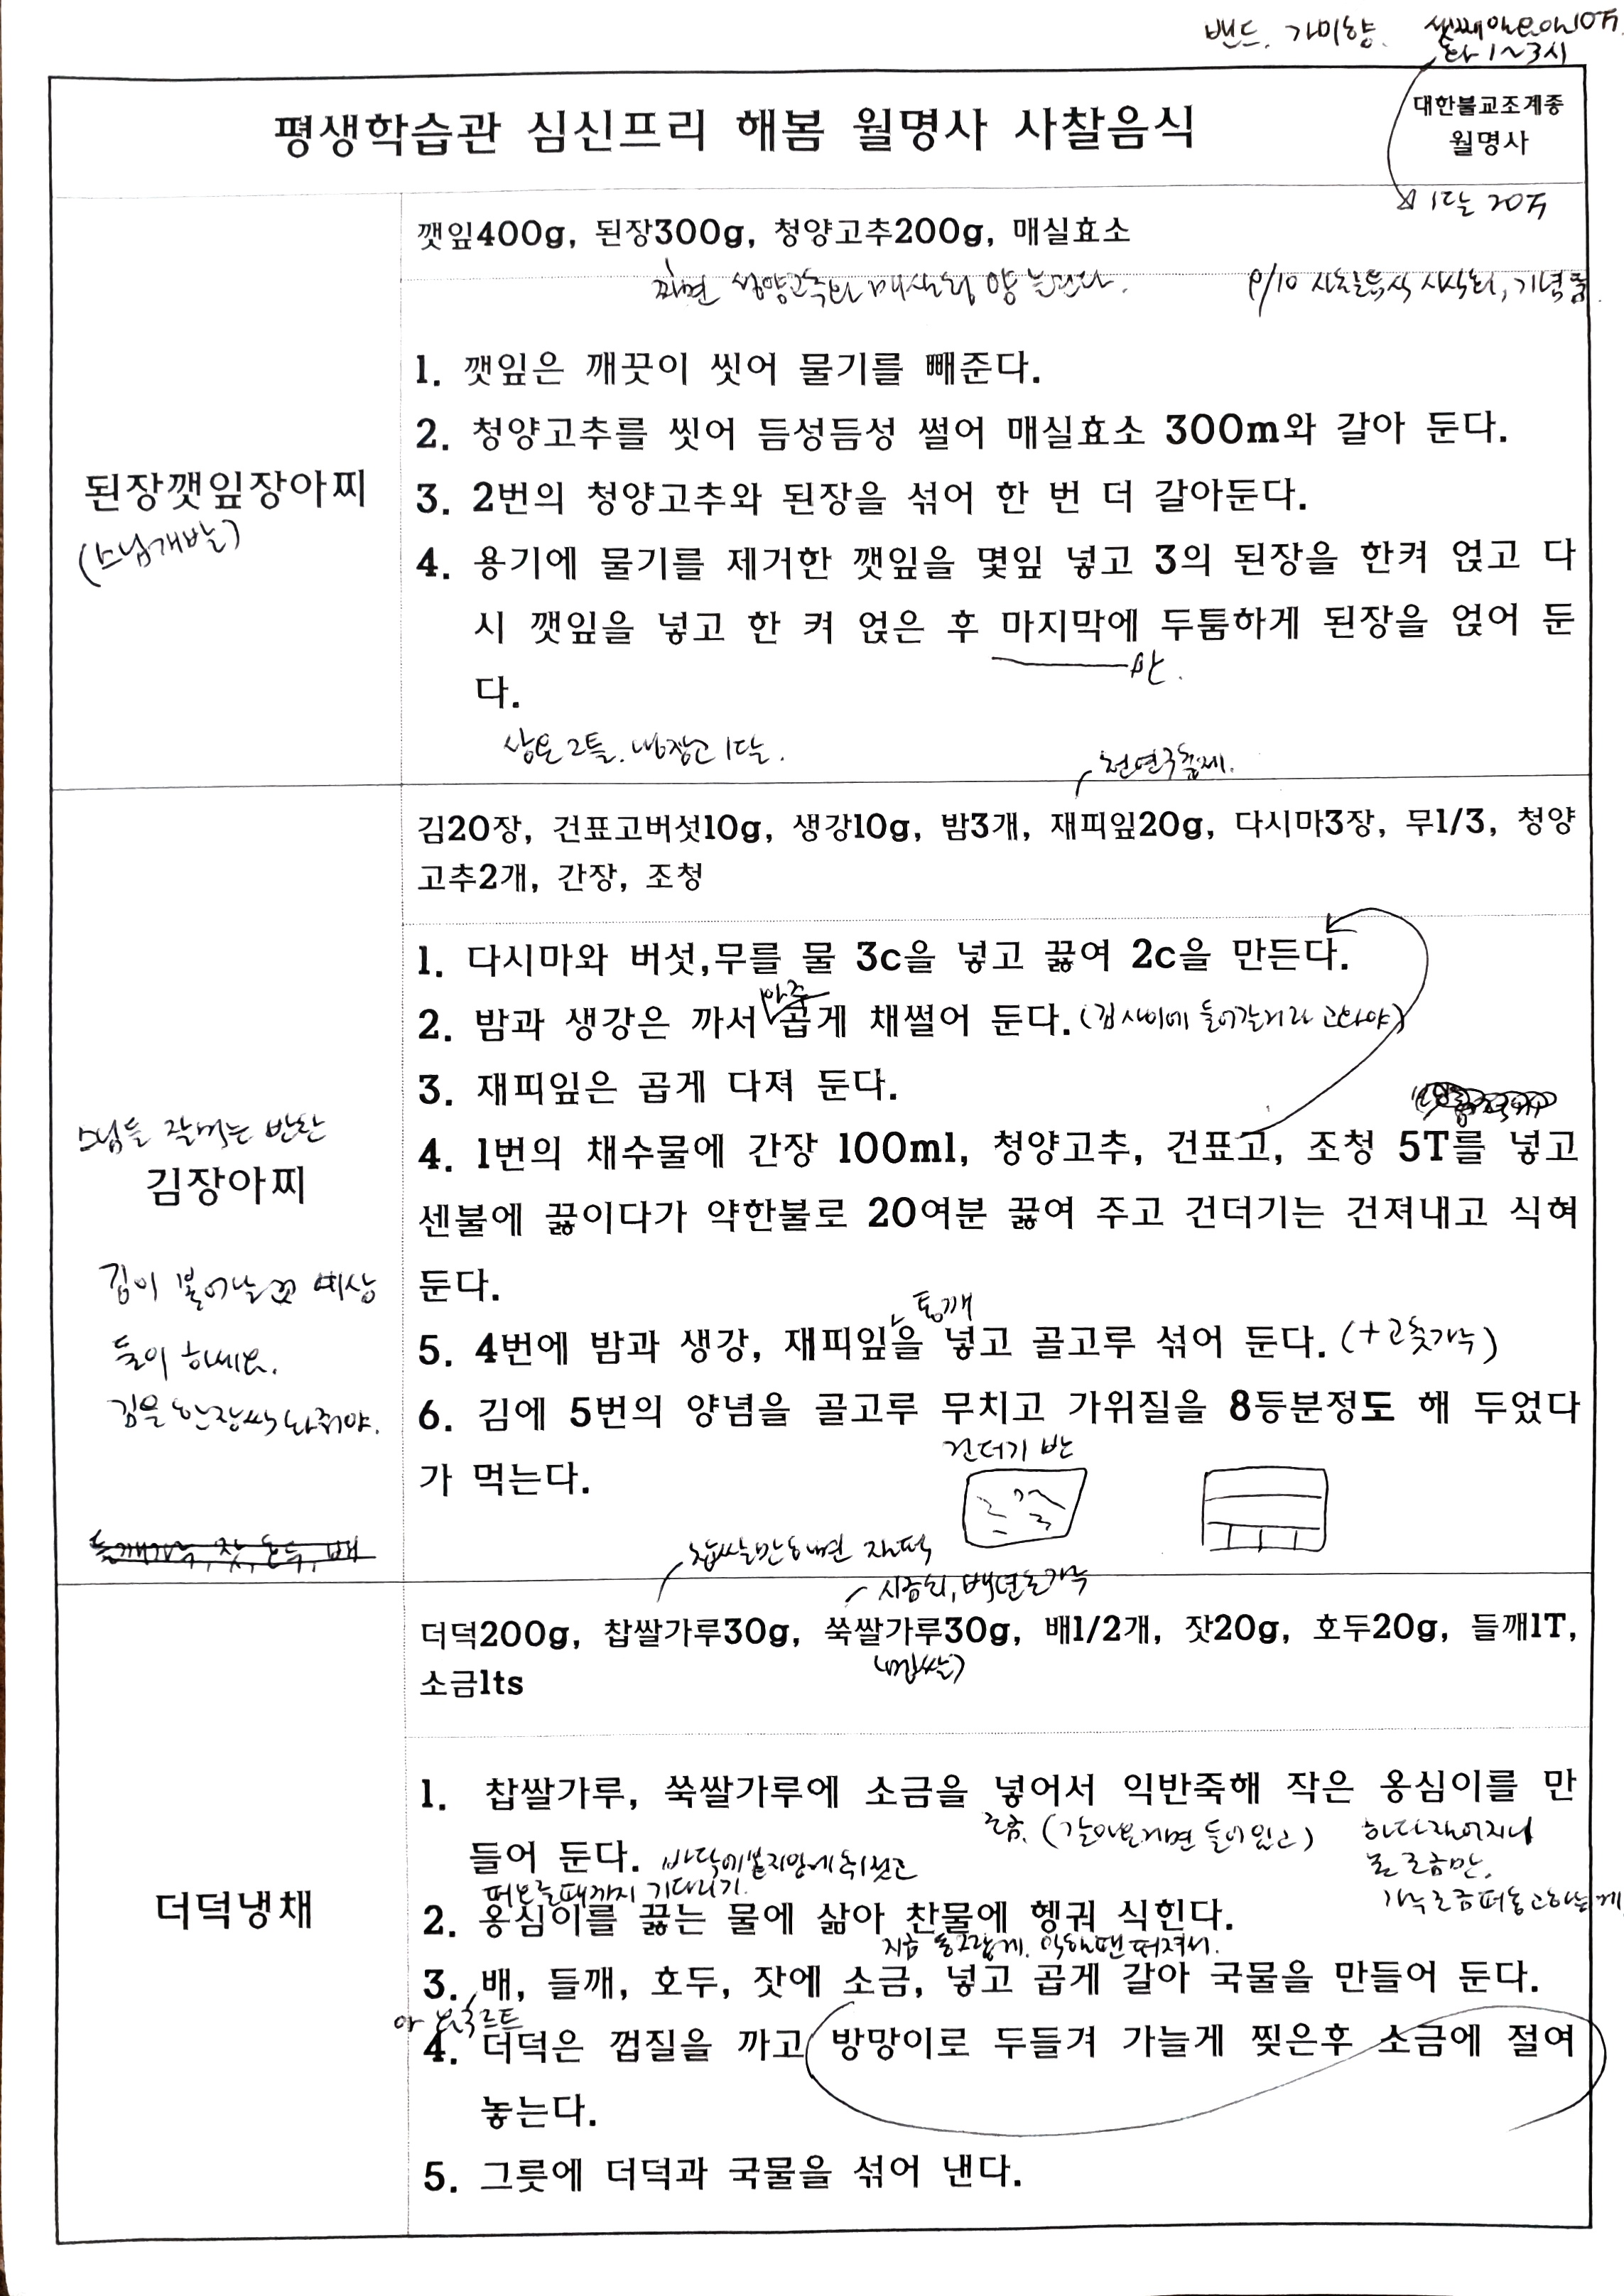 밴드. 가미향.
화 1~3시
평생학습관 심신프리 해봄 월명사 사찰음식
대한불교조계종
월명사
1달 20
깻잎400g, 된장300g, 청양고추200g, 매실효소
짜면 청양고추와 매실청 양 늘린다.
9/10 사찰음식 시식회, 기념품
된장깻잎장아찌
(스님개발)
1. 깻잎은 깨끗이 씻어 물기를 빼준다.
2. 청양고추를 씻어 듬성듬성 썰어 매실효소 300m와 갈아 둔다.
3. 2번의 청양고추와 된장을 섞어 한 번 더 갈아둔다.
4. 용기에 물기를 제거한 깻잎을 몇잎 넣고 3의 된장을 한켜 얹고 다
시 깻잎을 넣고 한 켜 얹은 후 마지막에 두툼하게 된장을 얹어 둔
다.
만.
상온 2틀. 냉장고 1달.
천연
김20장, 건표고버섯10g, 생강10g, 밤3개, 재피잎20g, 다시마3장, 무1/3, 청양
고추2개, 간장, 조청
스님들 잘먹는 반찬
김장아찌
김이 불어날 것 예상
들이 하세요.
김을 한장씩 놔줘야.
1. 다시마와 버섯,무를 물 3c을 넣고 끓여 2c을 만든다.
아주
2. 밤과 생강은 까서 곱게 채썰어 둔다. (김 사이에 들어갈거라 고와야)
3. 재피잎은 곱게 다져 둔다.
4. 1번의 채수물에 간장 100ml, 청양고추, 건표고, 조청 5T를 넣고
센불에 끓이다가 약한불로 20여분 끓여 주고 건더기는 건져내고 식혀
둔다.
통깨
5. 4번에 밤과 생강, 재피잎을 넣고 골고루 섞어 둔다. (+고춧가루)
6. 김에 5번의 양념을 골고루 무치고 가위질을 8등분정도 해 두었다
가 먹는다.
건더기 반
들깨가루, 잣, 호두, 배
찹쌀만하면
더덕냉채
더덕200g, 찹쌀가루30g, 쑥쌀가루30g, 배1/2개, 잣20g, 호두20g, 들깨1T,
소금1ts
(멥쌀)
1. 찹쌀가루, 쑥쌀가루에 소금을 넣어서 익반죽해 작은 옹심이를 만
들어 둔다.
조금. (갈아온거면 들어있고)
물 조금만.
떠오를때까지 기다리기.
2. 옹심이를 끓는 물에 삶아 찬물에 헹궈 식힌다.
3. 배, 들깨, 호두, 잣에 소금, 넣고 곱게 갈아 국물을 만들어 둔다.
요구르트
4. 더덕은 껍질을 까고 방망이로 두들겨 가늘게 찢은후 소금에 절여
놓는다.
5. 그릇에 더덕과 국물을 섞어 낸다.